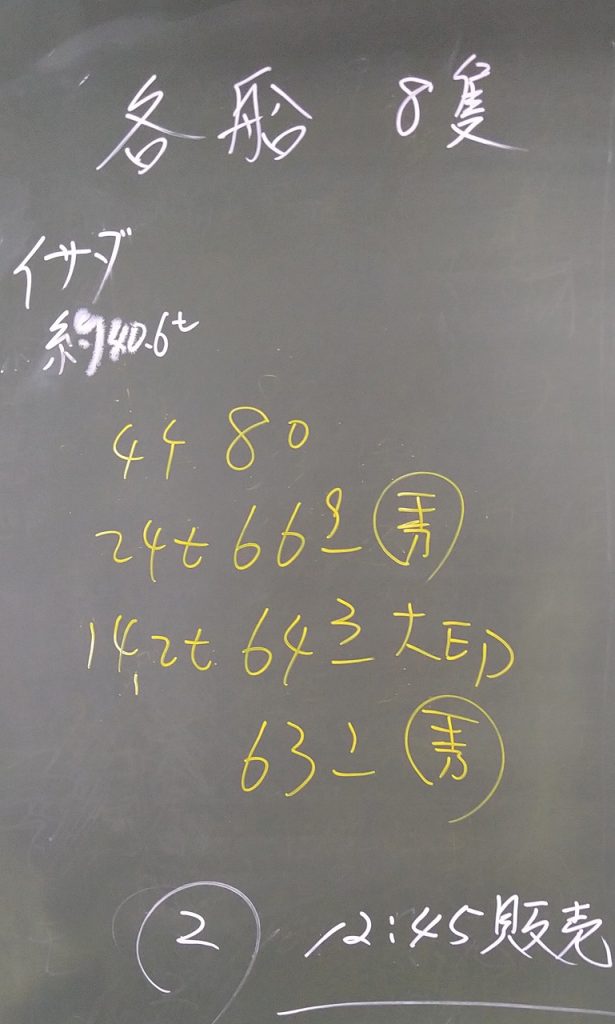 各船 8隻
イサダ
約40.6t
44 80
24t 66 9 秀
14.2t 64 3 大印
63 1 秀
2 12:45販売